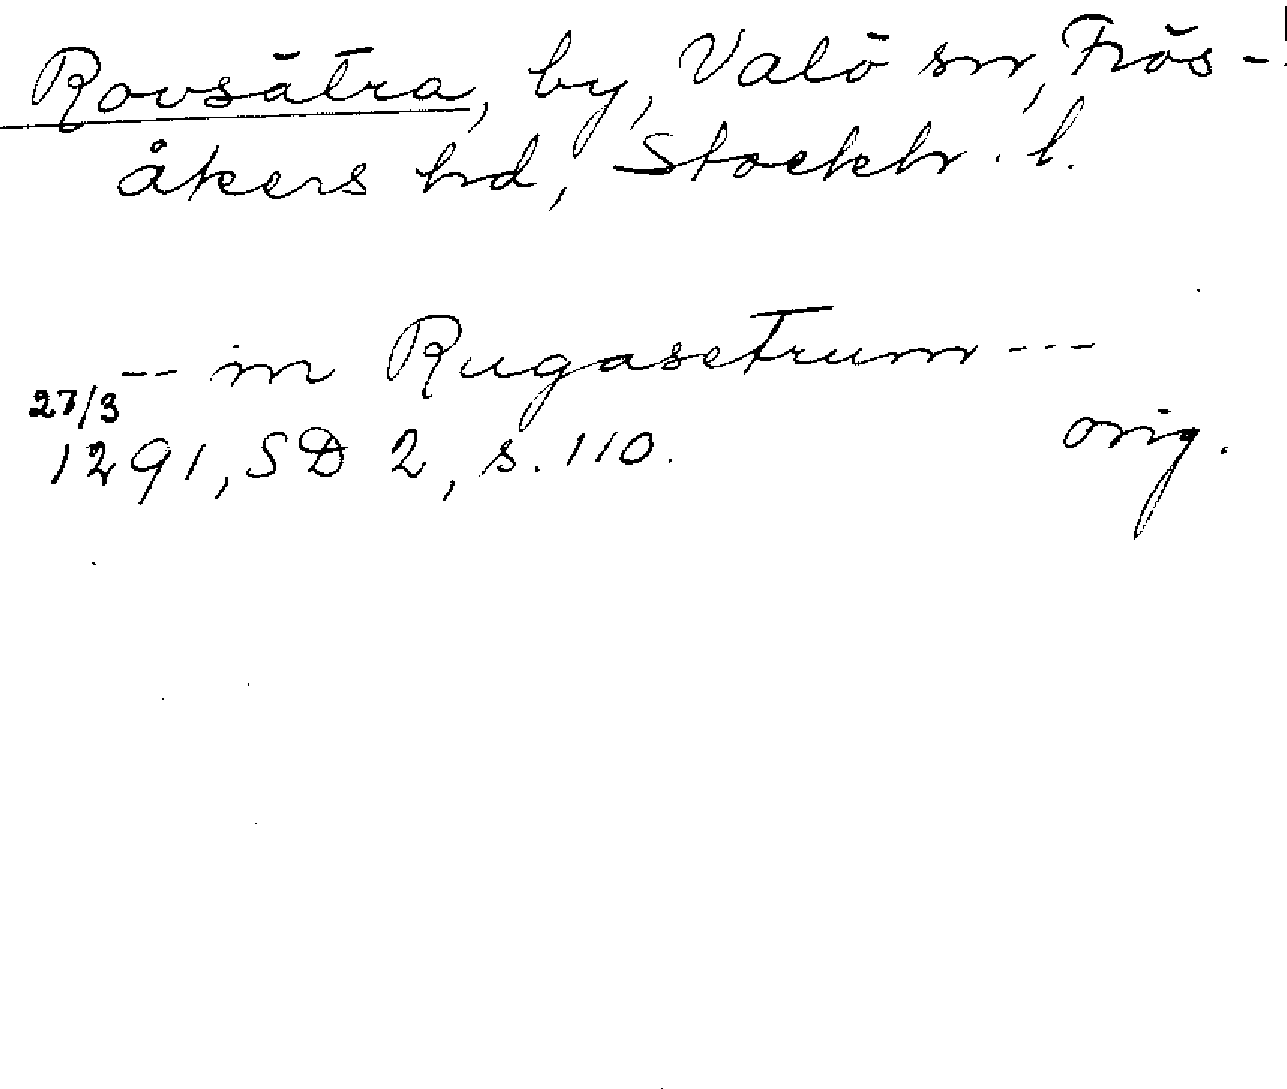 Rovsätra, by, Valö sn, Frös-
åkers hd, Stockh. l.
-- in Rugasetrum ---
27/3
1291, SD 2, s. 110. orig.